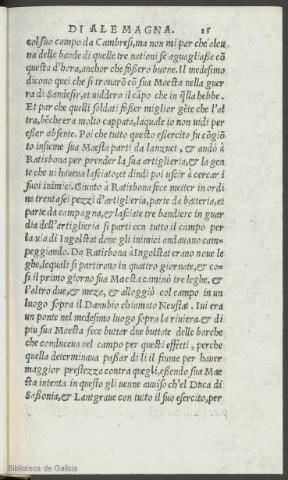 DI ALEMAGNA. 15
col suo campo da Cambresi, ma non mi par che alcu
na delle bande di quelle tre nationi se aguagliasse cō
questa d'hora, anchor che fossero buone. Il medesimo
dicono quei che si trouarō cō sua Maesta nella guer
ra di Sandesir, et uiddero il cāpo che in q̄lla hebbe.
Et par che quelli soldati fosser miglior gēte che l'al
tra, bēche era molto cappata, laquale io non uidi per
esser absente. Poi che tutto questo esercito fu cōgiō
to insieme sua Maesta parti da lanzuet, & andò à
Ratisbona per prender la sua artiglieria, & la gen
te che ui haueua lasciato, et dindi poi uscir à cercar i
suoi inimici. Giunto à Ratisbona fece metter in ordi
ne trentasei pezzi d'artiglieria, parte da batteria, et
parte da campagna, & lasciate tre bandiere in guar
dia dell'artiglieria si parti con tutto il campo per
la uia di Ingolstat doue gli inimici andauano cam-
peggiando. Da Ratisbona à Ingolstat erano noue le
ghe, lequali si partirono in quattro giornate, & co-
si il primo giorno sua Maesta caminò tre leghe, &
l'altro due, & meza, & alloggiò col campo in un
luogo sopra il Danubio chiamato Neustat. Iui era
un ponte nel medesimo luogo sopra la riuiera. & di
piu sua Maesta fece buttar due buttate delle barche
che conduceua nel campo per questi effetti, perche
quella determinaua passar di li il fiume per hauer
maggior prestezza contra quegli, essendo sua Mae
sta intenta in questo gli uenne auuiso ch'el Duca di
Sassonia, & Lantgraue con tutto il suo esercito, per
Biblioteca de Galicia